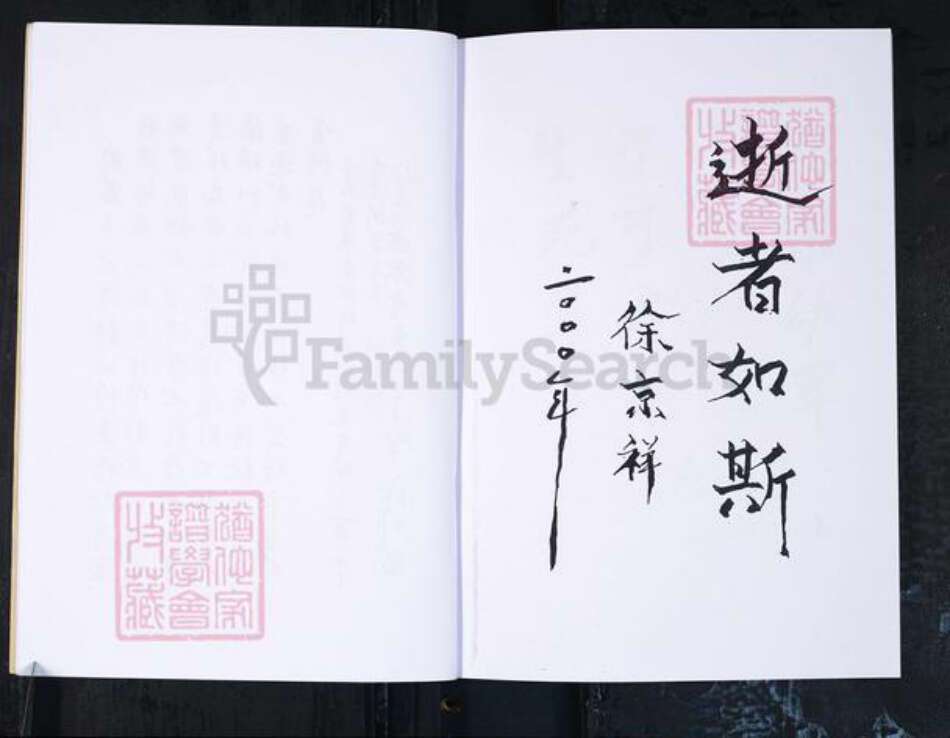 逝者如斯
徐京祥
二〇〇〇年
猶他家
譜學會
收藏
猶他家
譜學會
收藏
FamilySearch